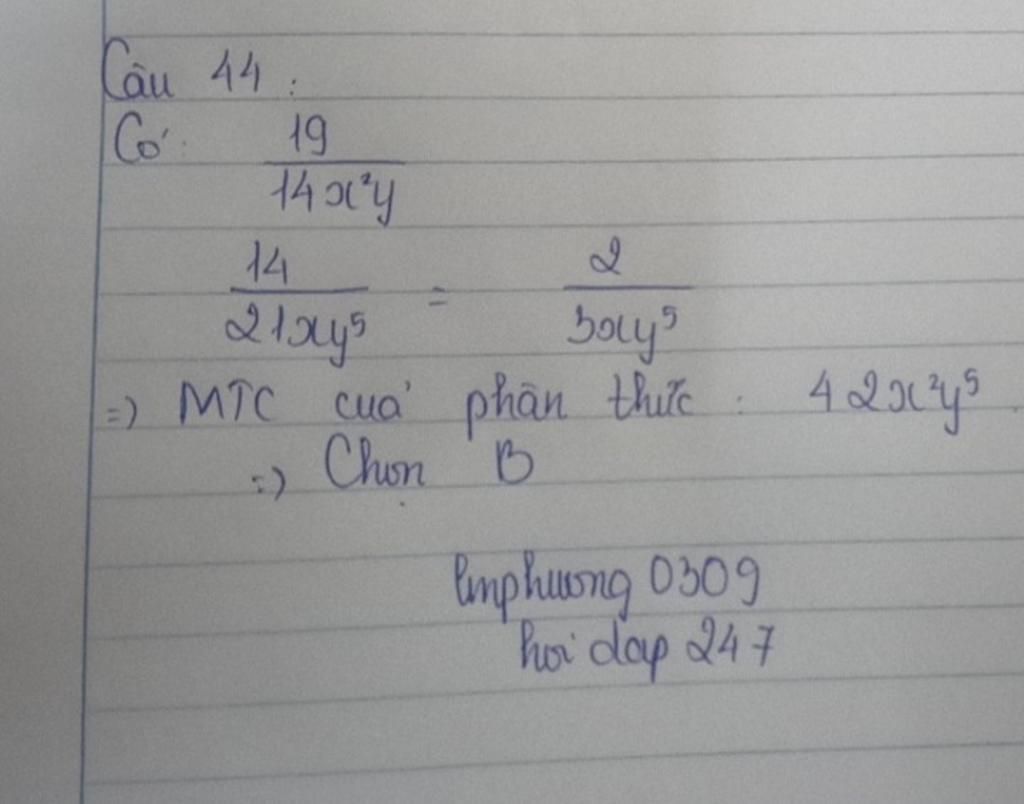 Câu 44 :
Có: 19/14x²y
14/21xy⁵ = 2/3xy⁵
=> MTC cuả phân thức : 42x²y⁵.
=> Chọn B
lmphuong 0309
hoi dap 247